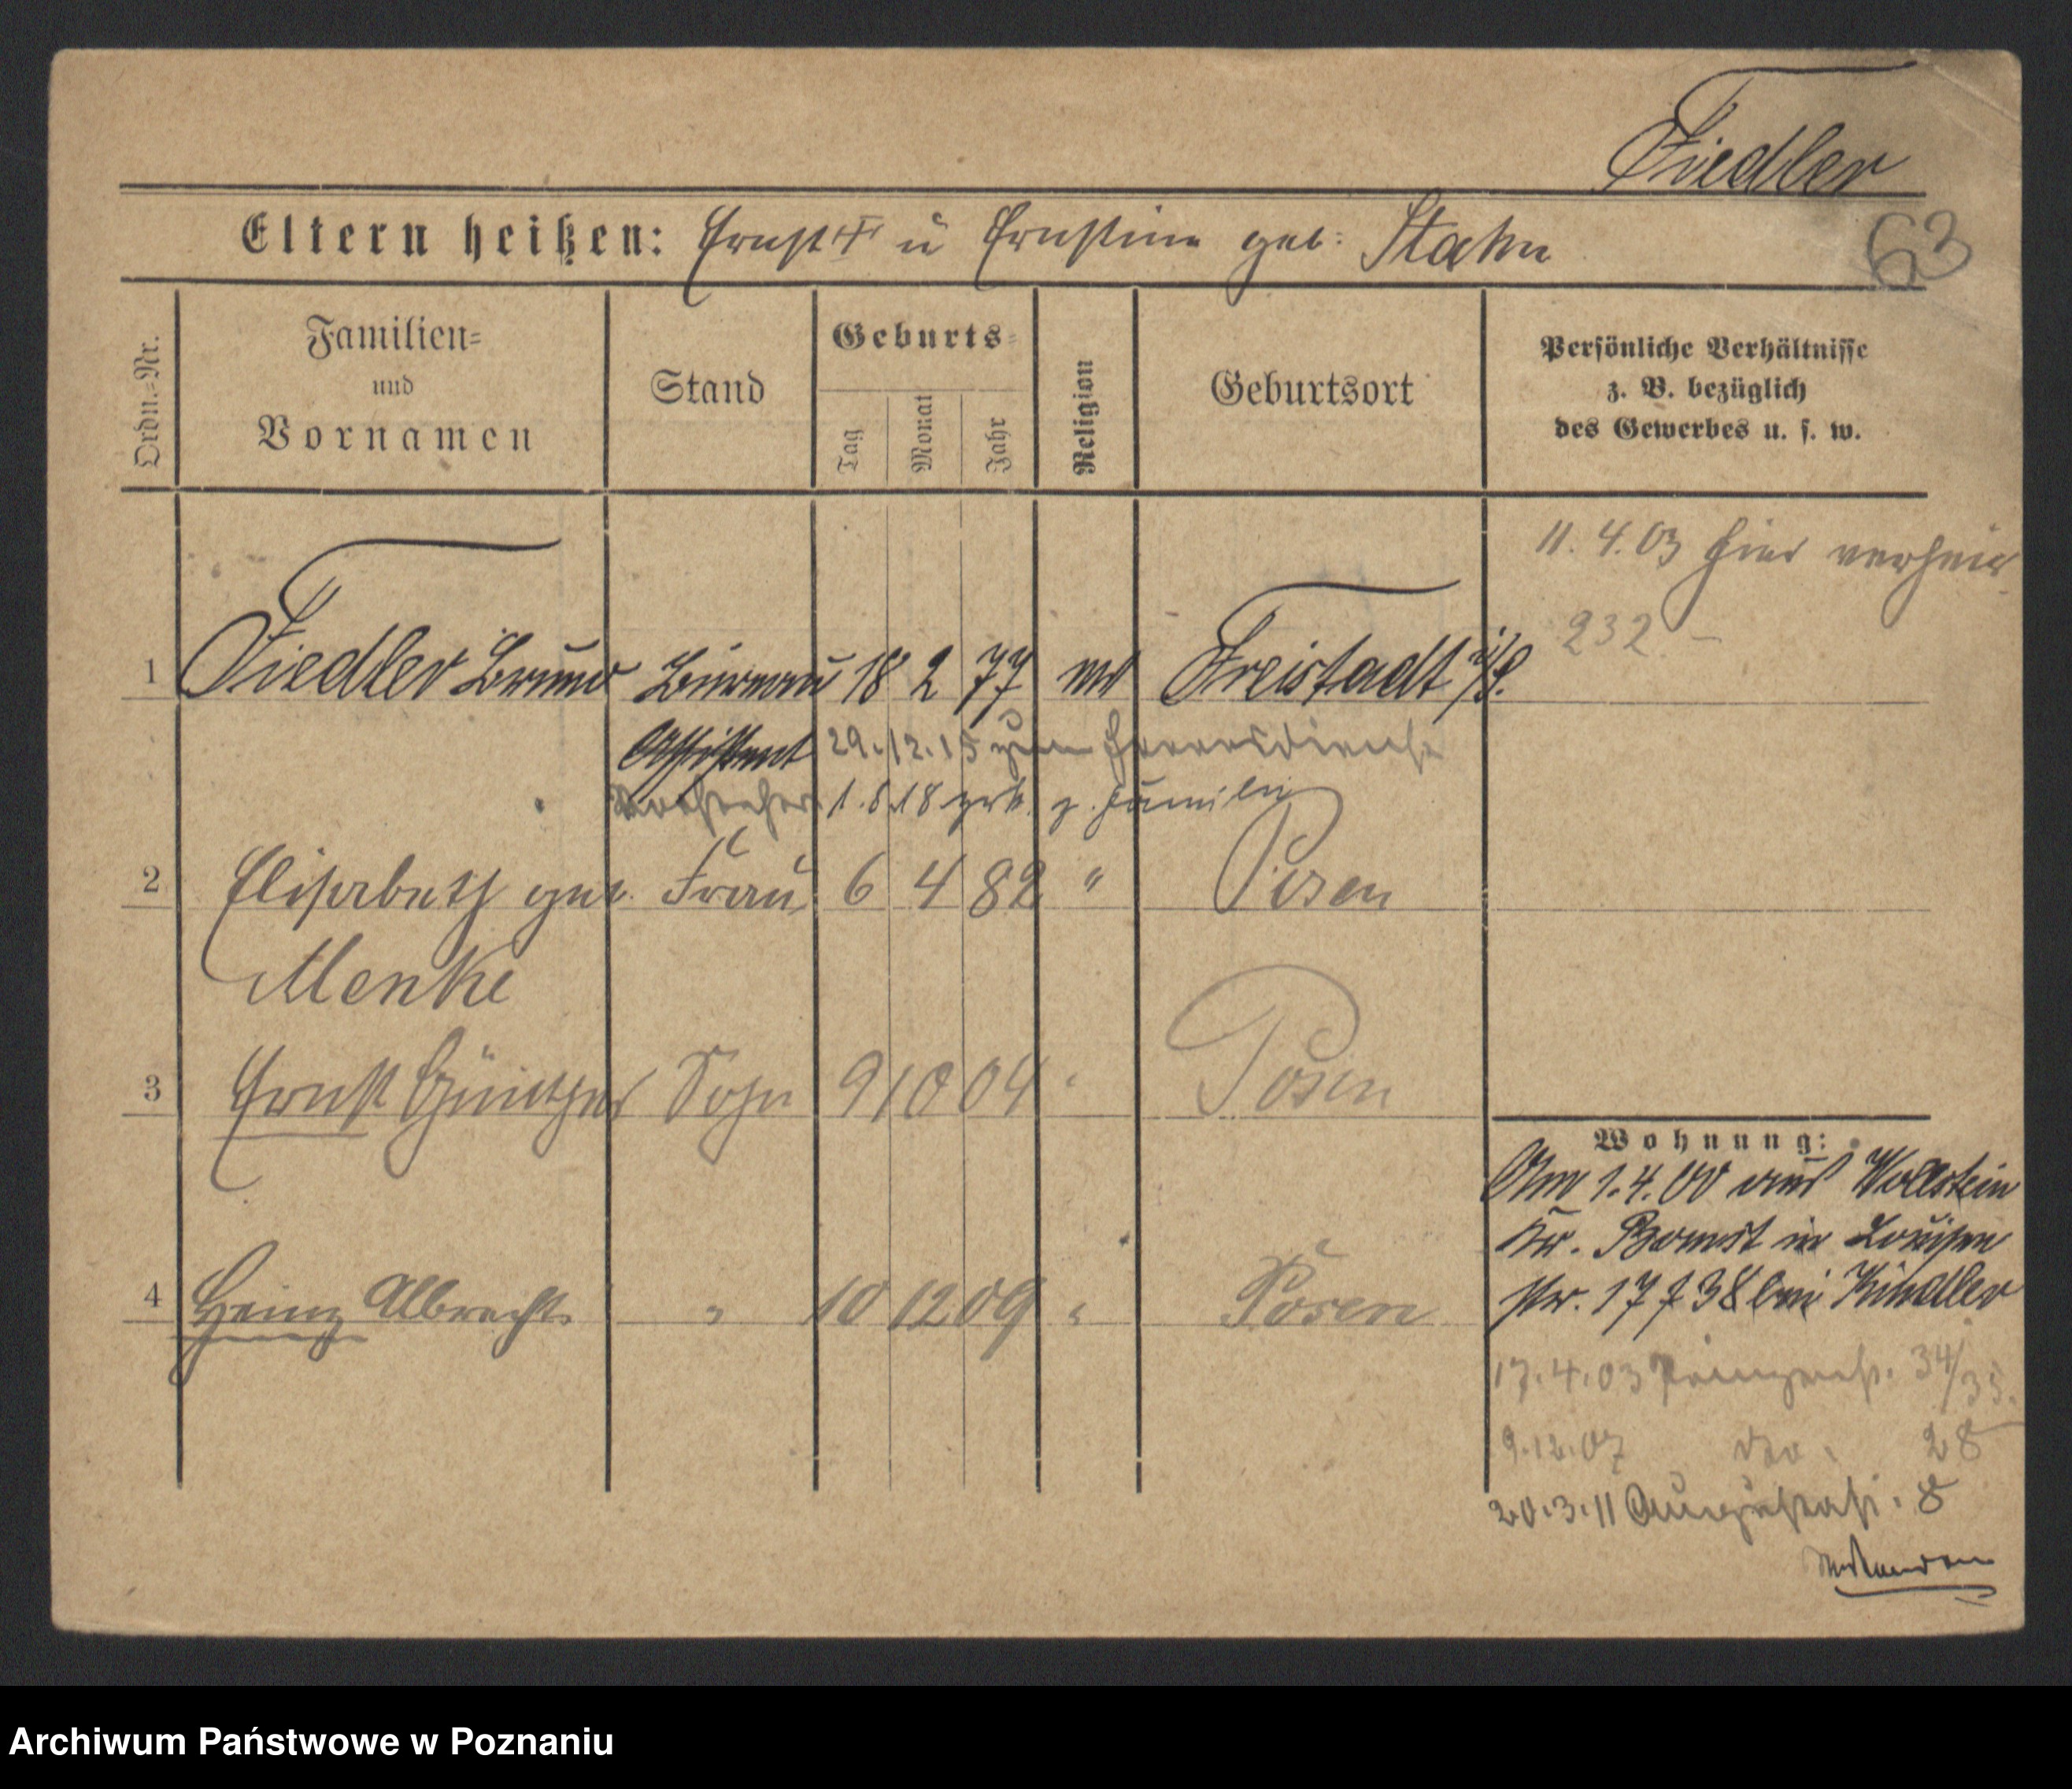 Fiedler
Eltern heißen: Ernst † u Ernstine geb: Stahn
63
Ordn.-Nr.
Familien-
und
Vornamen
Stand
Geburts-
Tag
Monat
Jahr
Religion
Geburtsort
Persönliche Verhältnisse
z. B. bezüglich
des Gewerbes u. s. w.
11. 4. 03 hier verheir.
232
1 Fiedler Bruno Bureau 18 2 77 ev Freistadt i/S.
Assistent 29.12.15 zum Heeresdienst
Vorsteher 1.8.18 zrk. z. Familie
2 Elisabeth geb. Frau 6 4 82 " Posen
Menke
3 Ernst Günther Sohn 9 10 04 " Posen
4 Heinz Albrecht " 10 12 09 " Posen
Wohnung:
Am 1.4.00 aus Wollstein
Kr. Bomst in Louisen
str. 17 f 38 bei Kindler
17.4.03 Prinzenstr. 34/35.
9.12.07 do. 28
20.3.11 Augustastr. 8
Archiwum Państwowe w Poznaniu